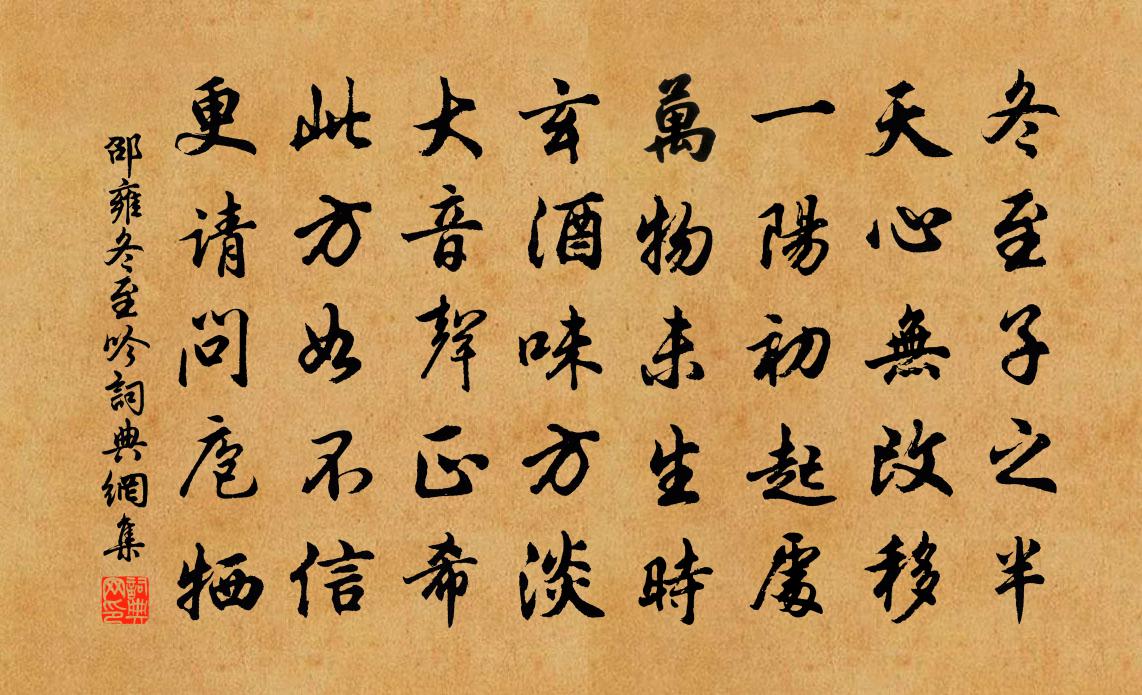 冬至子之半
天心無改移
一陽初起處
萬物未生時
玄酒味方淡
大音聲正希
此方如不信
更请問庖牺
邵雍冬至吟詞典網集
詞典
网印